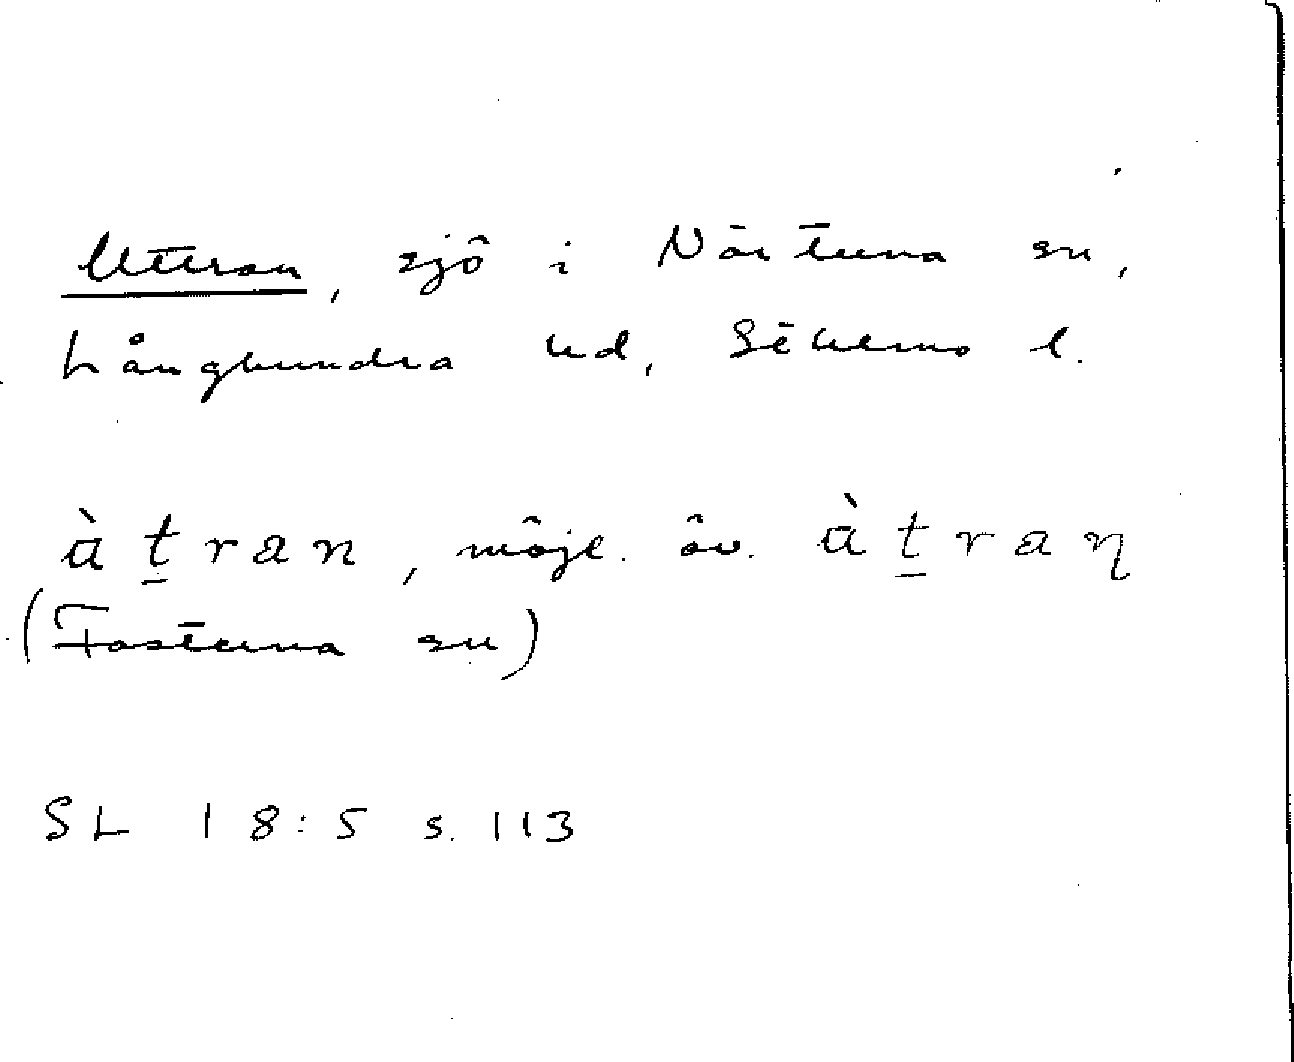 Uttran, sjö i Närtuna sn,
Långhundra hd, Sthlms l.
àt̠ran, möjl. äv. àt̠raŋ
(Fasterna sn)
SL 18:5 s. 113